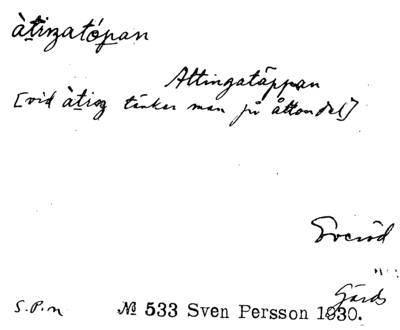 àtiŋatópan
Attingatäppan
[vid àtiŋ tänker man på åttondel]
Everöd
Gärds
S.P-n № 533 Sven Persson 1930.